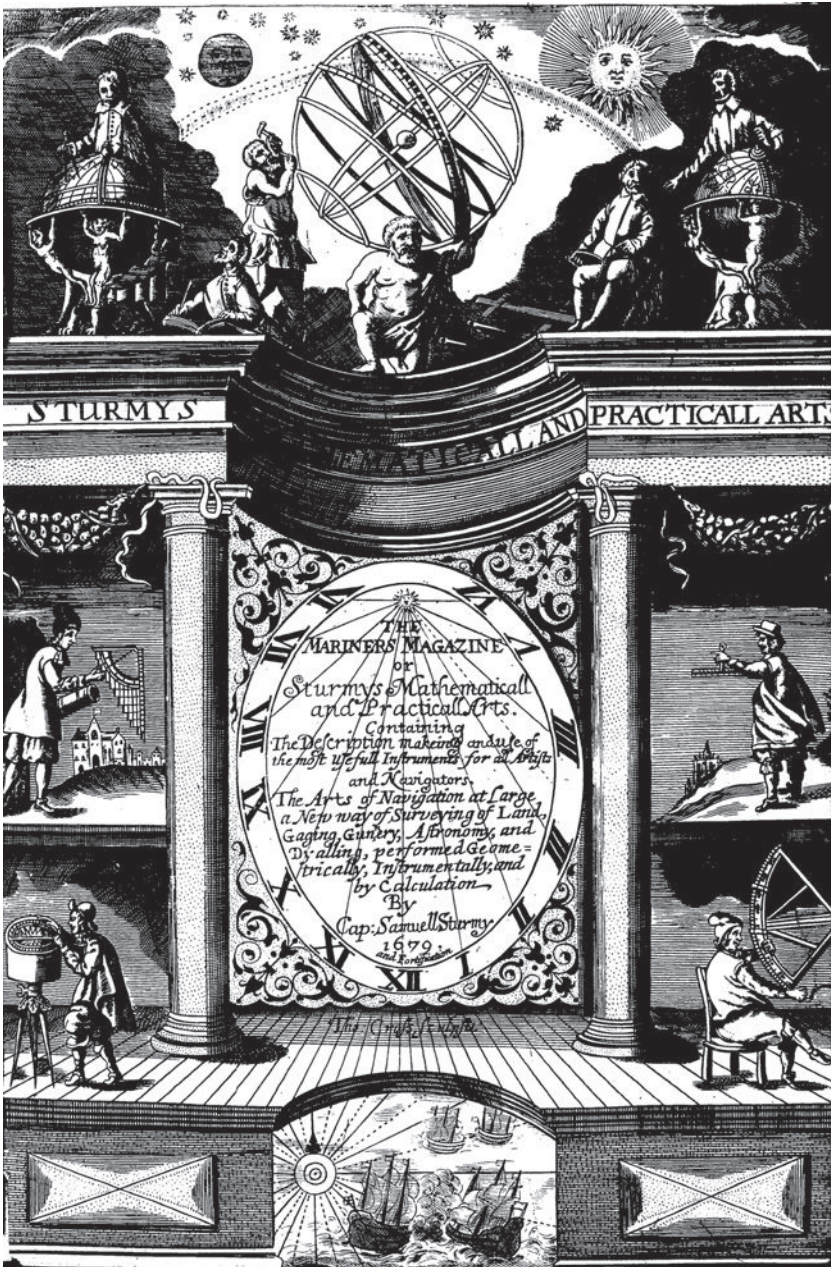 STURMYS
EMATICALL AND
PRACTICALL ARTS
THE
MARINERS MAGAZINE
or
Sturmys Mathematicall
and Practicall Arts.
Containing
The Description makeing and use of
the most Usefull Instruments for all Artists
and Navigators.
The Arts of Navigation at Large
a New way of Surveying of Land,
Gaging, Gunery, Astronomy, and
Dyalling, performed Geome=
trically, Instrumentally, and
by Calculation
By
Cap: Samuell Sturmy
1679
and Fortification
VIII
IX
X
XI
XII
I
II
III